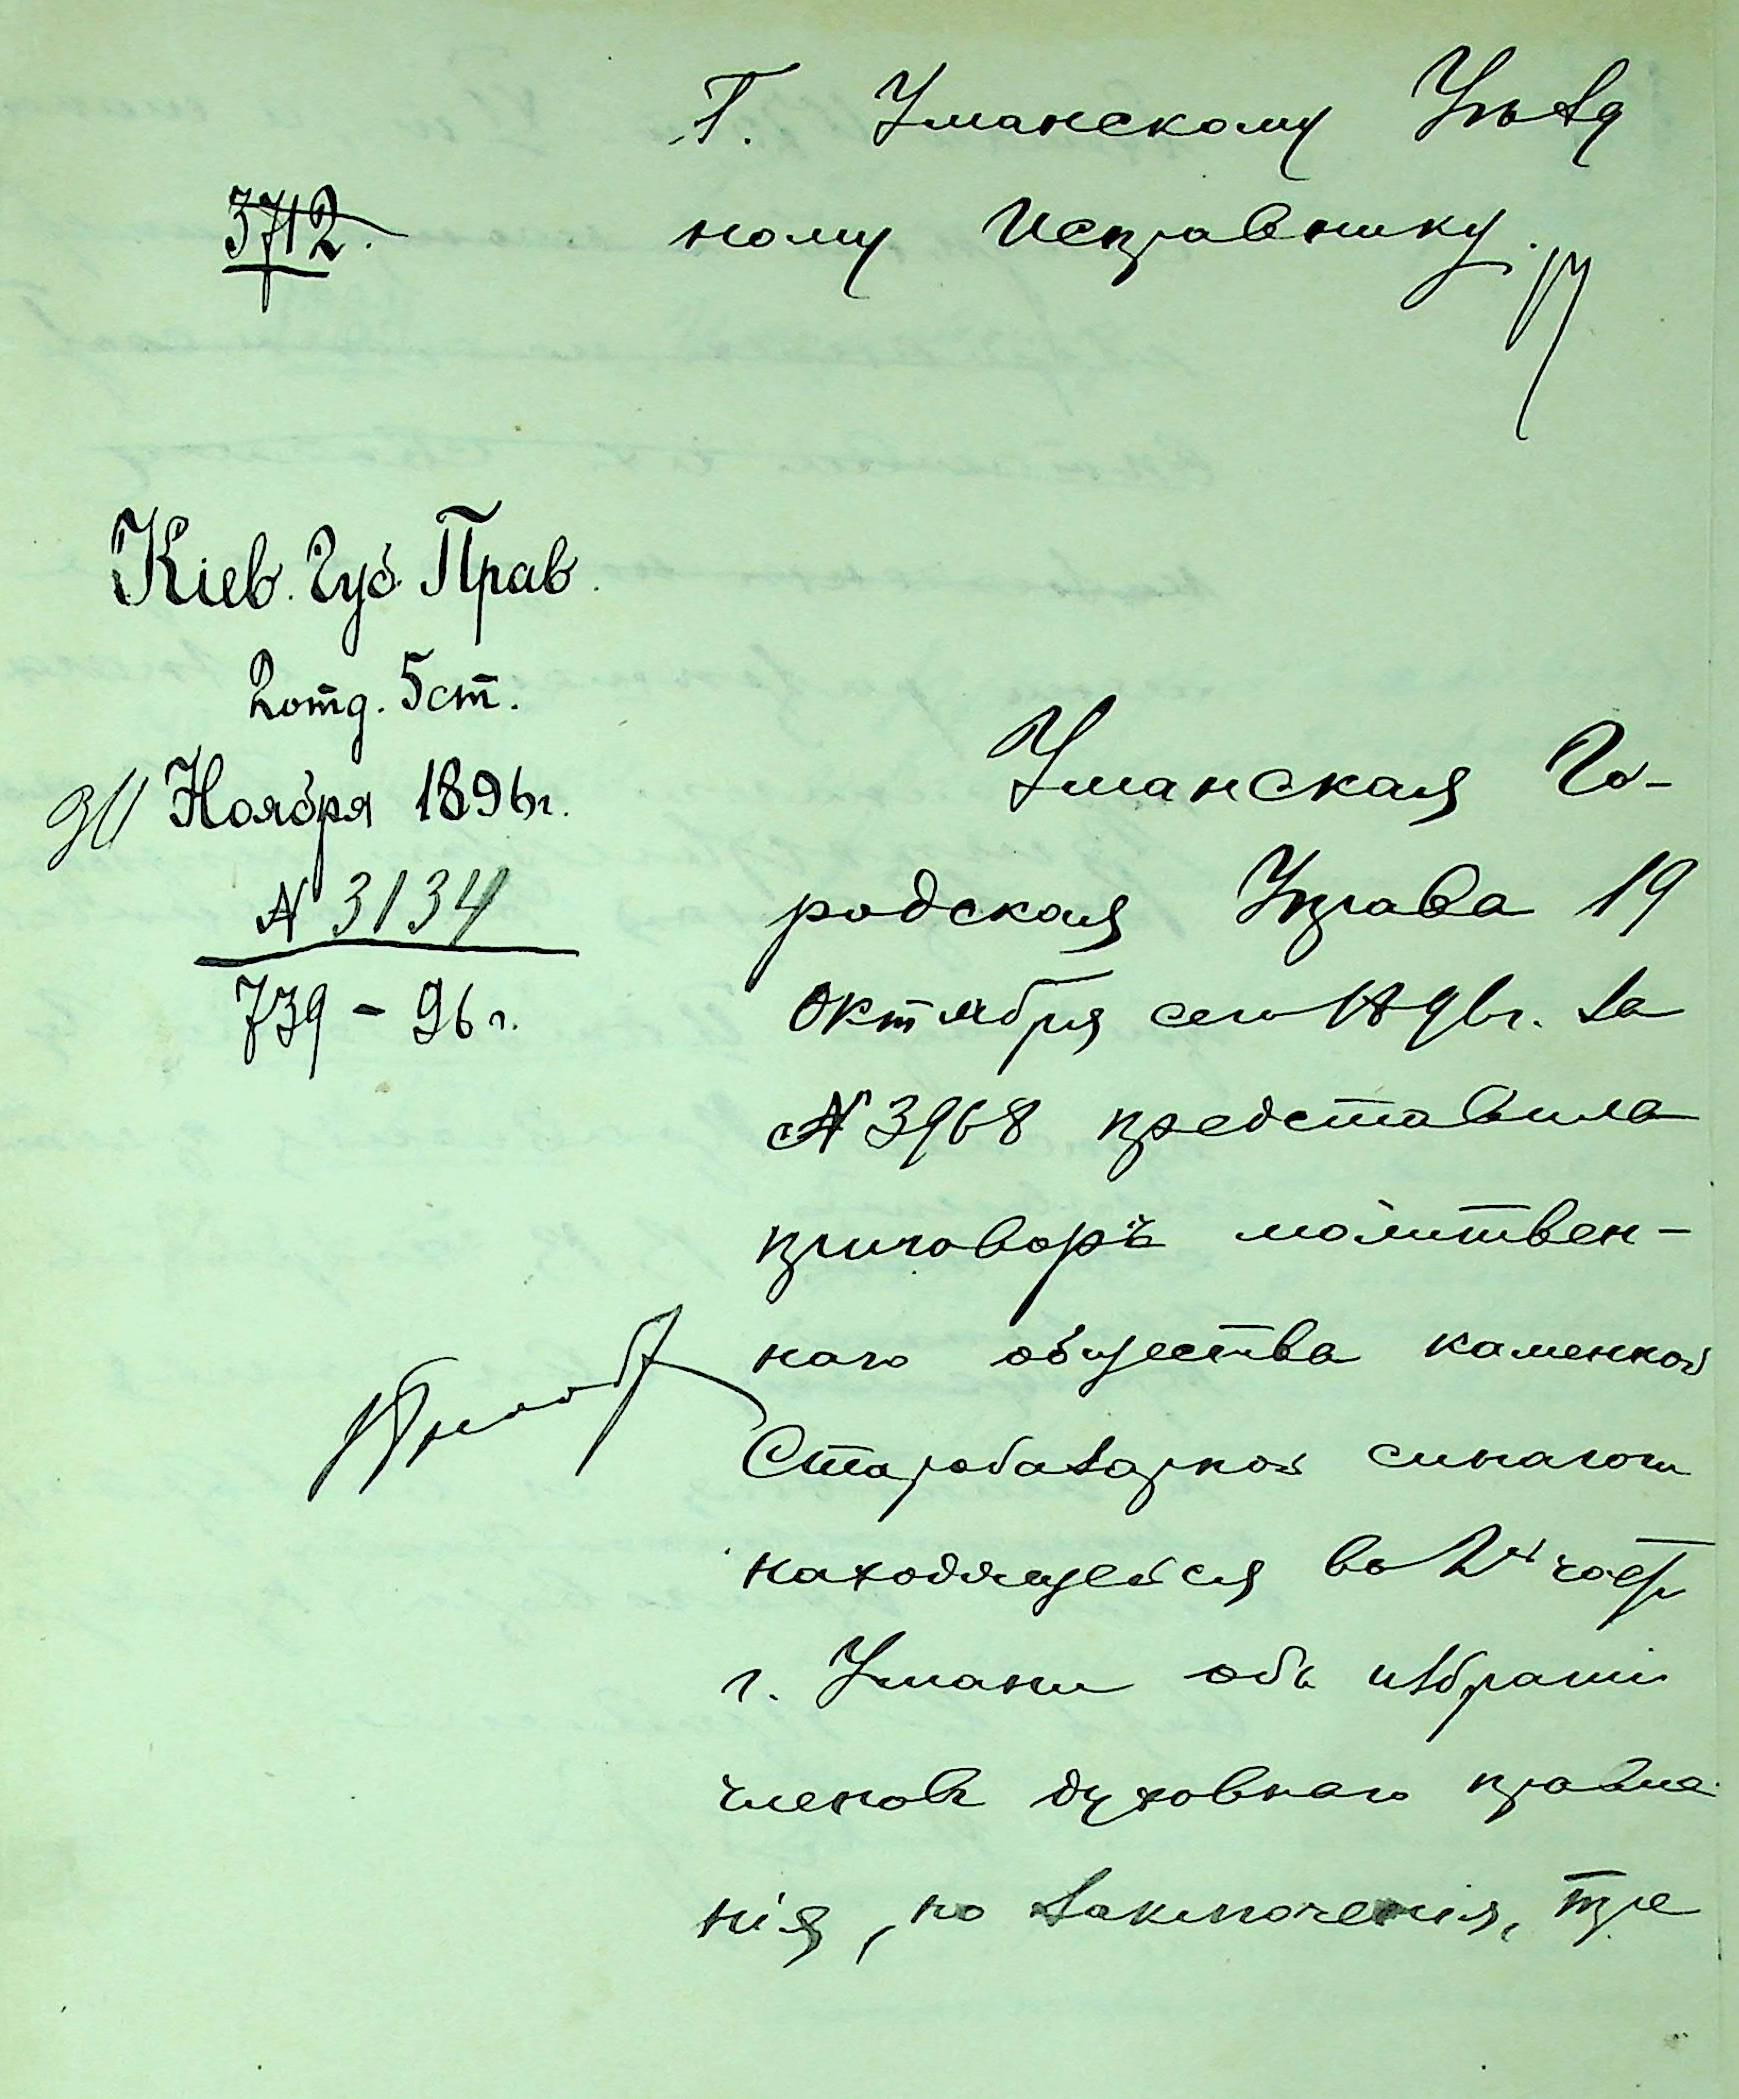 Г. Уманскому Уѣзд
ному Исправнику.
3712.
Кіев. Губ. Прав.
2 отд. 5 ст.
Ноября 1896 г.
№ 3134
739 - 96 г.
Уманская Го-
родская Управа 19
Октября сего 1896 г. за
№ 3968 представила
приговоръ молитвен-
наго общества каменной
Старобазарной синагоги
находящейся во 2й част
г. Умани объ избраніи
членовъ духовнаго правле
нія, но заключенія, тре